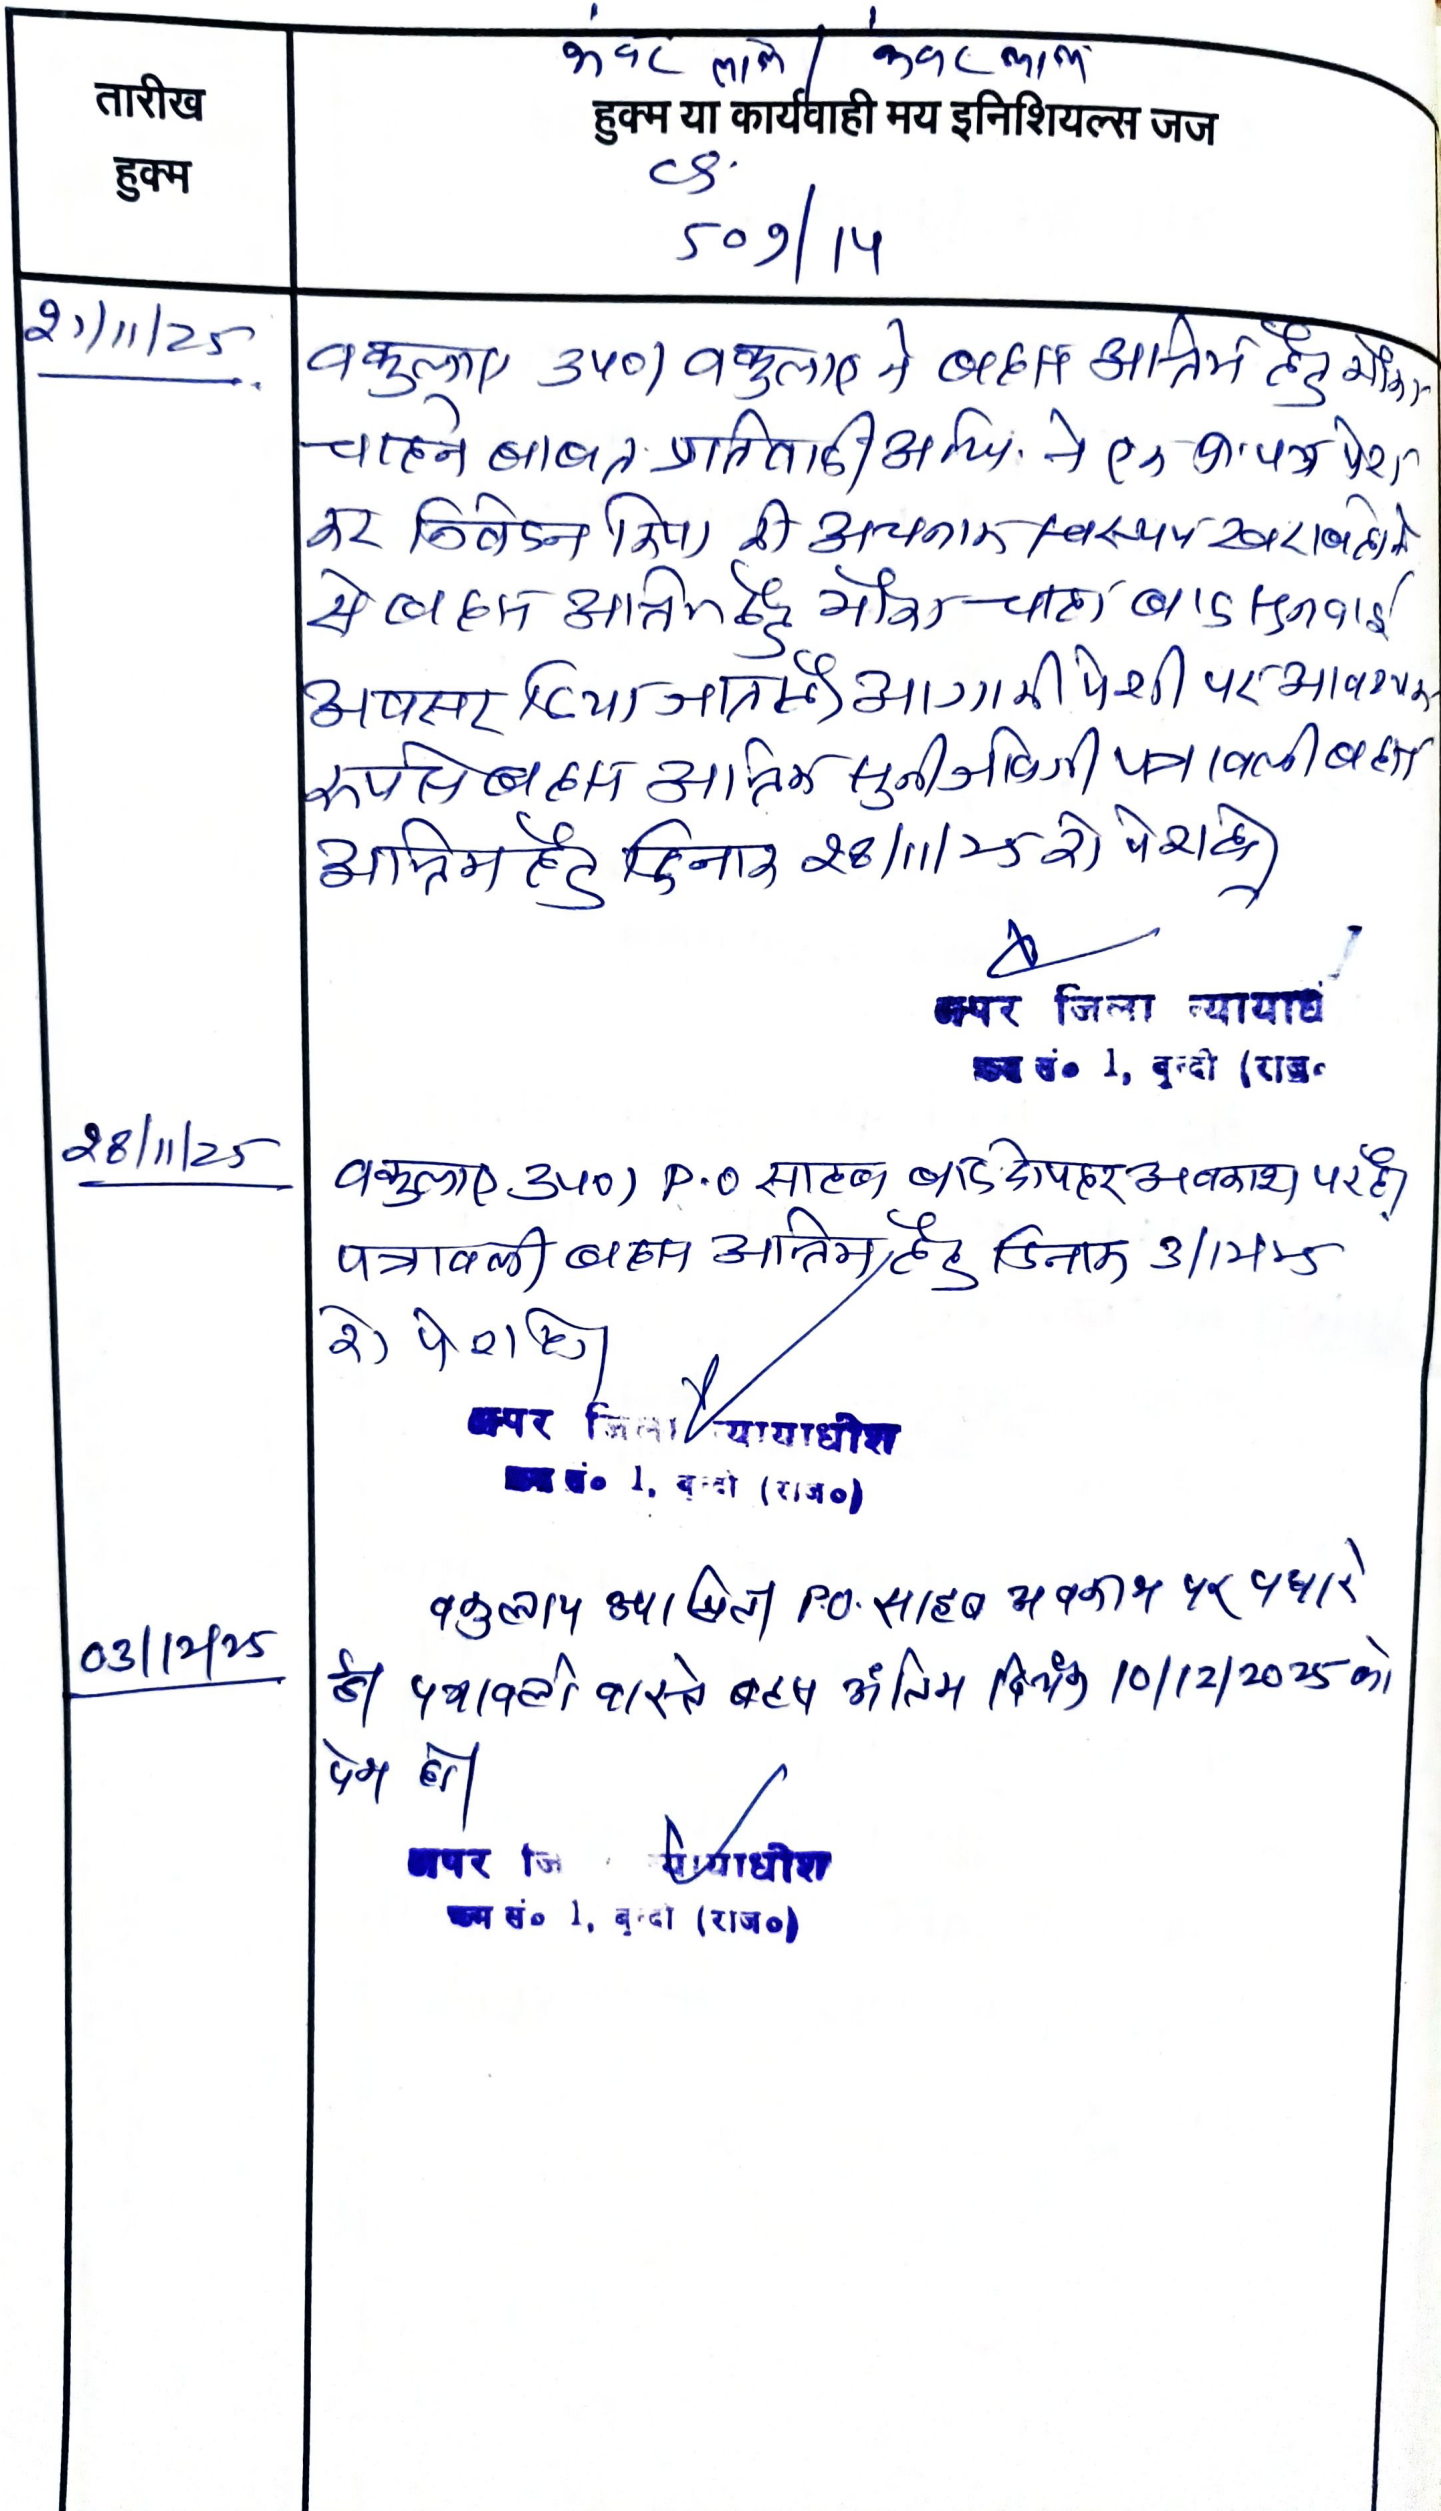 कवर लाल / कवर लाल
तारीख
हुक्म
हुक्म या कार्यवाही मय इनिशियल्स जज
CS.
509/14
21/11/25
वकुलाए उप0। वकुलाए ने बहस अन्तिम हेतु मौका
चाहने बाबत प्रतिवादी अधि. ने एक प्रा. पत्र पेश
कर निवेदन किया की अचानक स्वास्थ्य खराब होने
से बहस अन्तिम हेतु मौका चाहा बाद सुनवाई
अवसर दिया जाता है। आगामी पेशी पर आवश्यक
रूप से बहस अन्तिम सुनी जावेगी पत्रावली बहस
अन्तिम हेतु दिनांक 28/11/25 को पेश हो।
अपर जिला न्यायाधी
क्रम सं० 1, बून्दी (राज०
28/11/25
वकुलाए उप0। P.O साहब बाद दोपहर अवकाश पर है।
पत्रावली बहस अन्तिम हेतु दिनांक 3/12/25
को पेश हो।
अपर जिला न्यायाधीश
क्रम सं० 1, बून्दी (राज०)
03/12/25
वकुलाय उपस्थित। P.O. साहब अवकाश पर पधारे
है। पत्रावली वास्ते बहस अंतिम दिनांक 10/12/2025 को
पेश हो।
अपर जि न्यायाधीश
क्रम सं० 1, बून्दी (राज०)